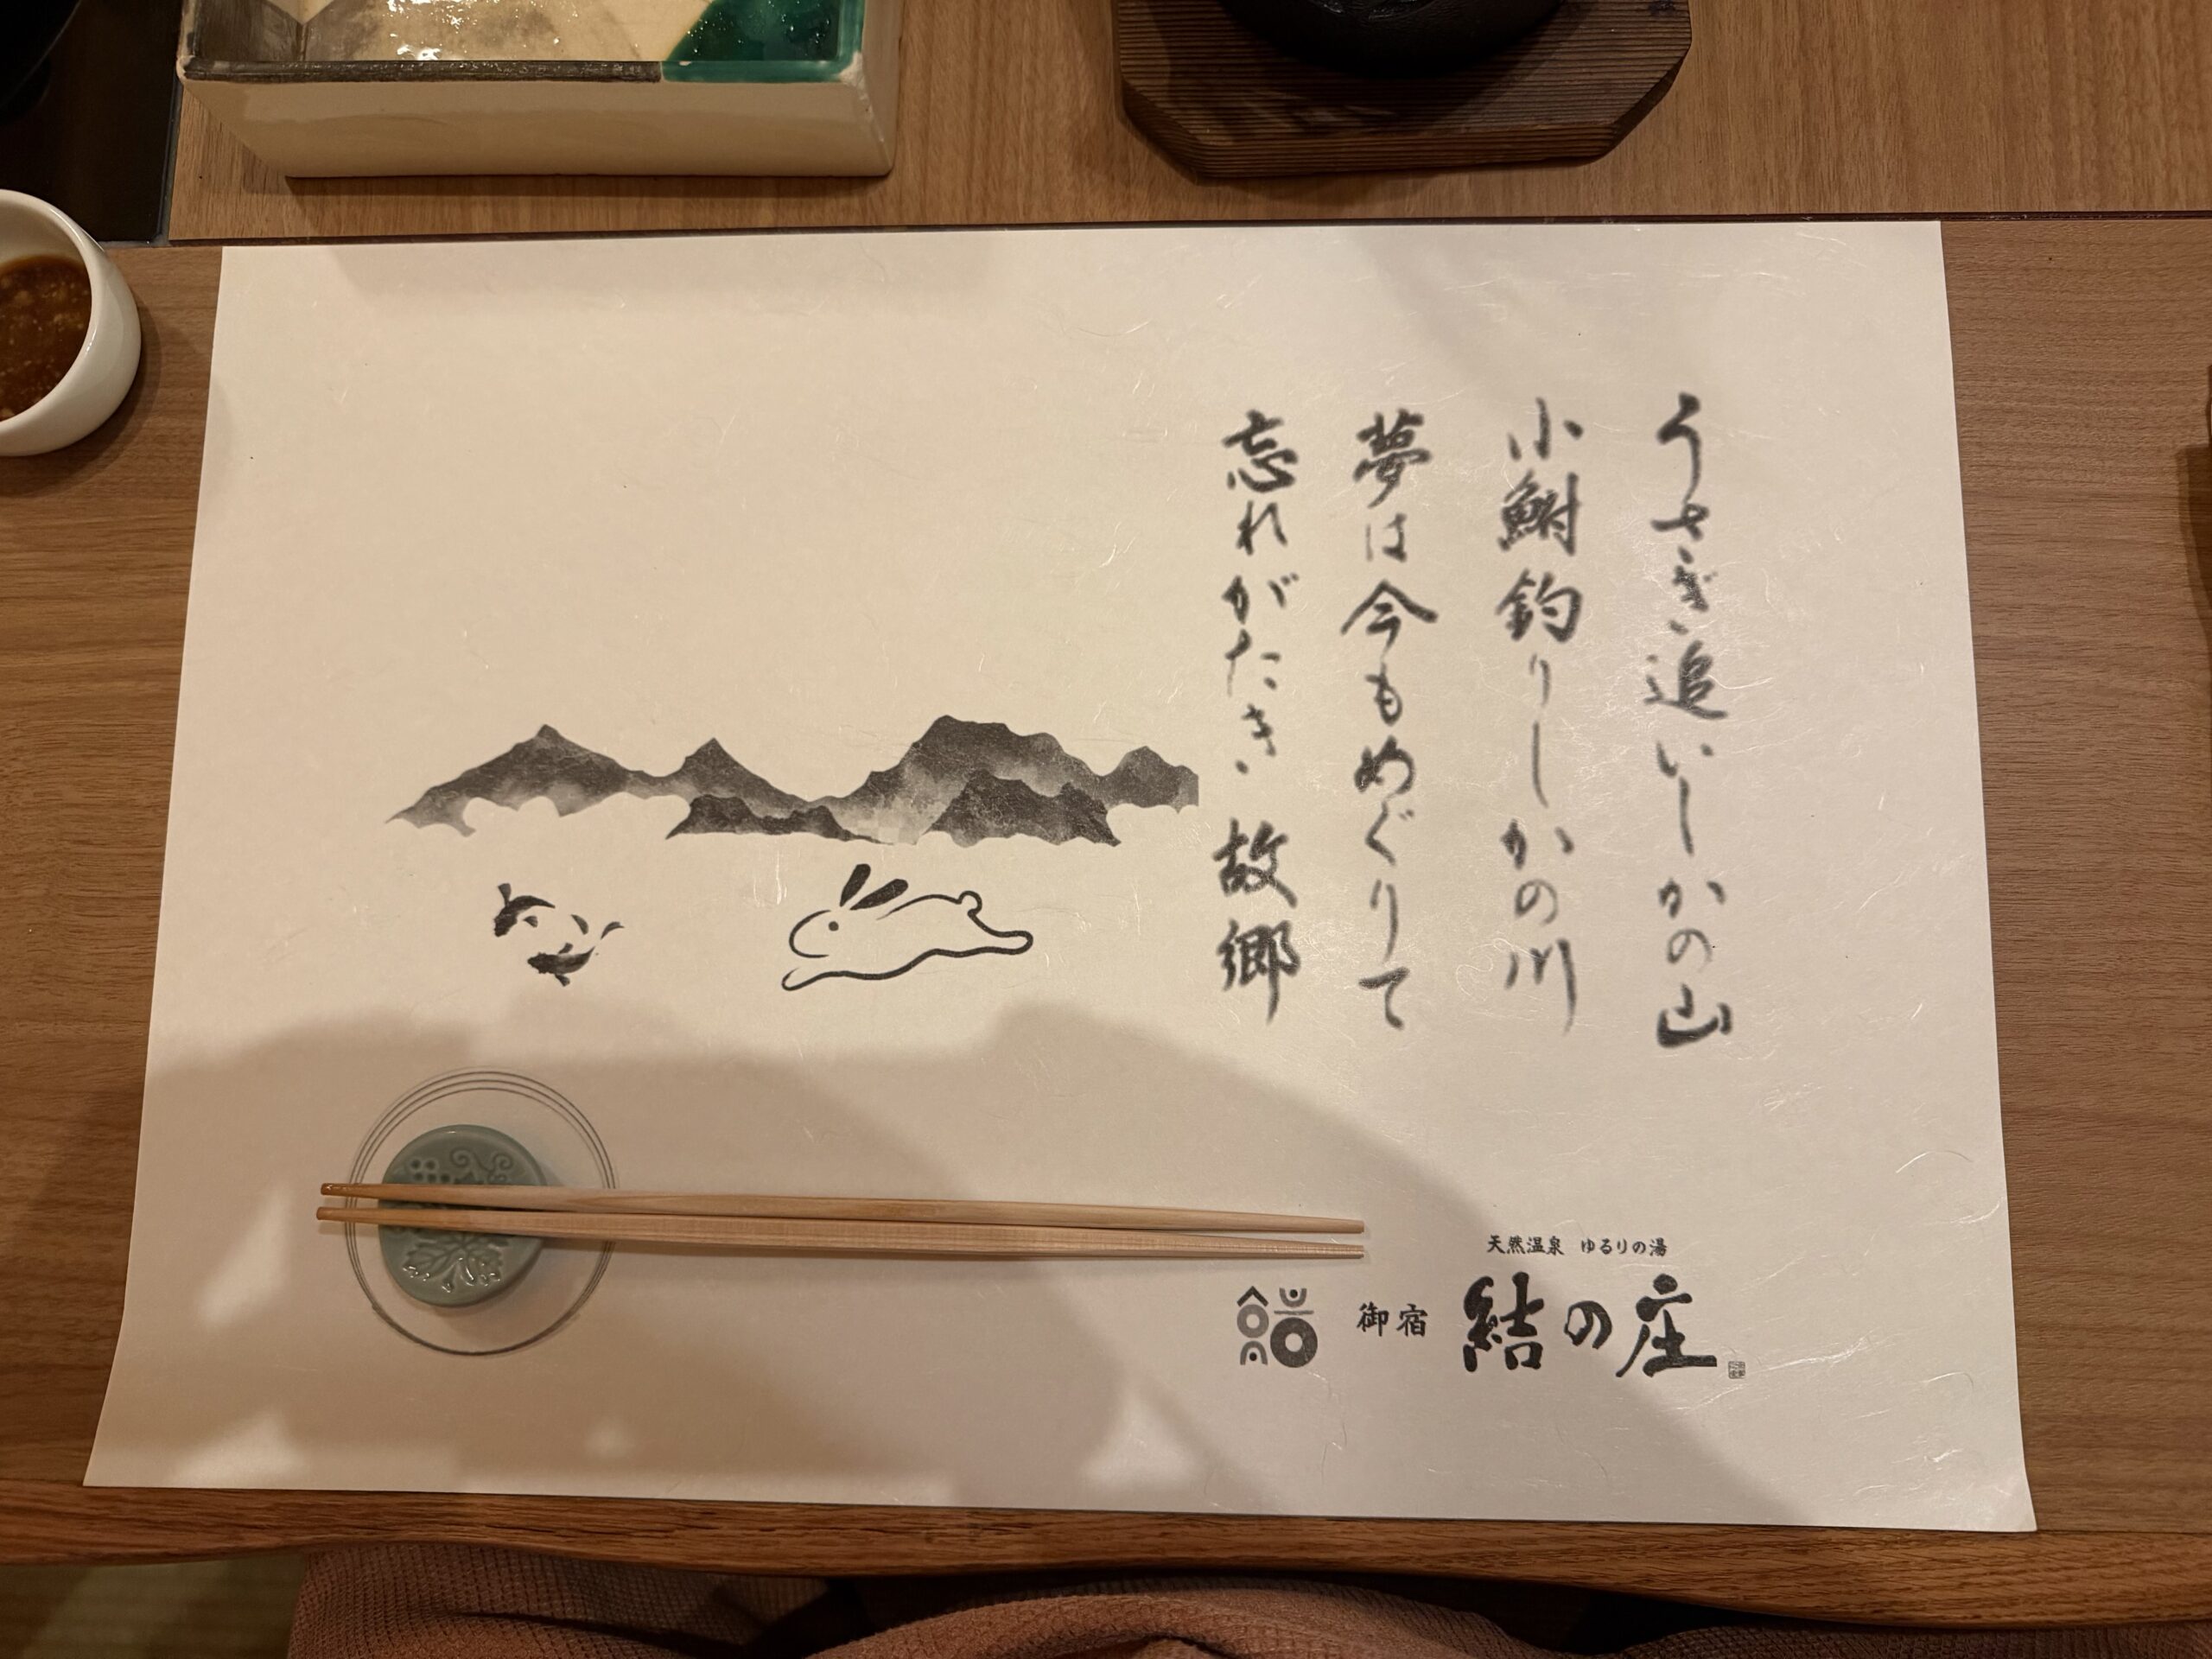 うさぎ追いしかの山
小鮒釣りしかの川
夢は今もめぐりて
忘れがたき故郷
天然温泉 ゆるりの湯
御宿 結の庄